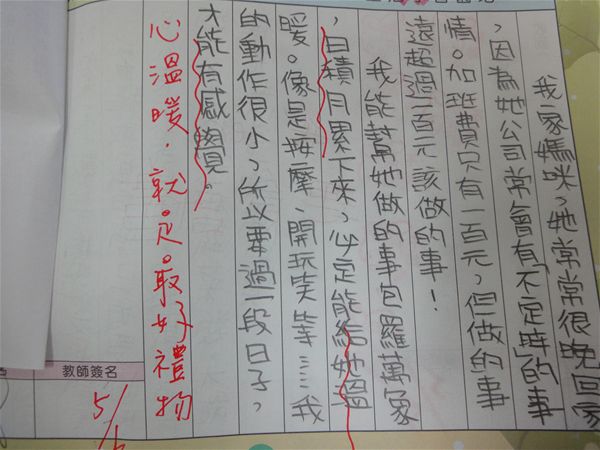 我家媽咪，她常常很晚回家
，因為她公司常會有「不定時」的事
情。加班費只有一百元，但做的事
遠超過一百元該做的事！
我能幫她做的事包羅萬象
，日積月累下來，必定能給她溫
暖。像是按摩、開玩笑等……我
的動作很小，所以要過一段日子，
才能有感覺。
心溫暖，就是最好禮物
教師簽名
5/